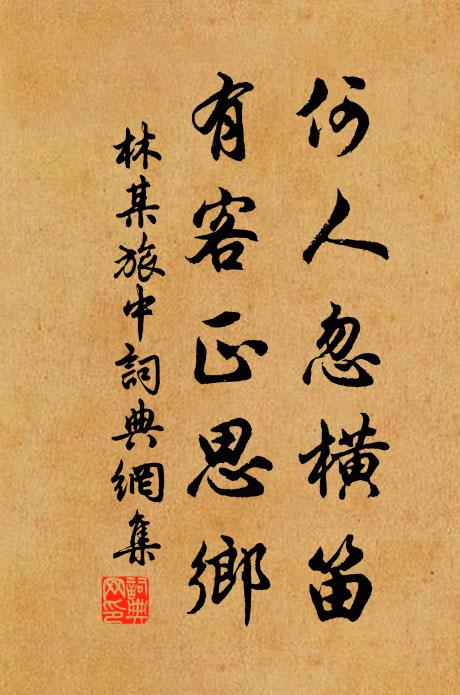 何人忽橫笛
有客正思鄉
林某旅中詞典網集
詞典網印